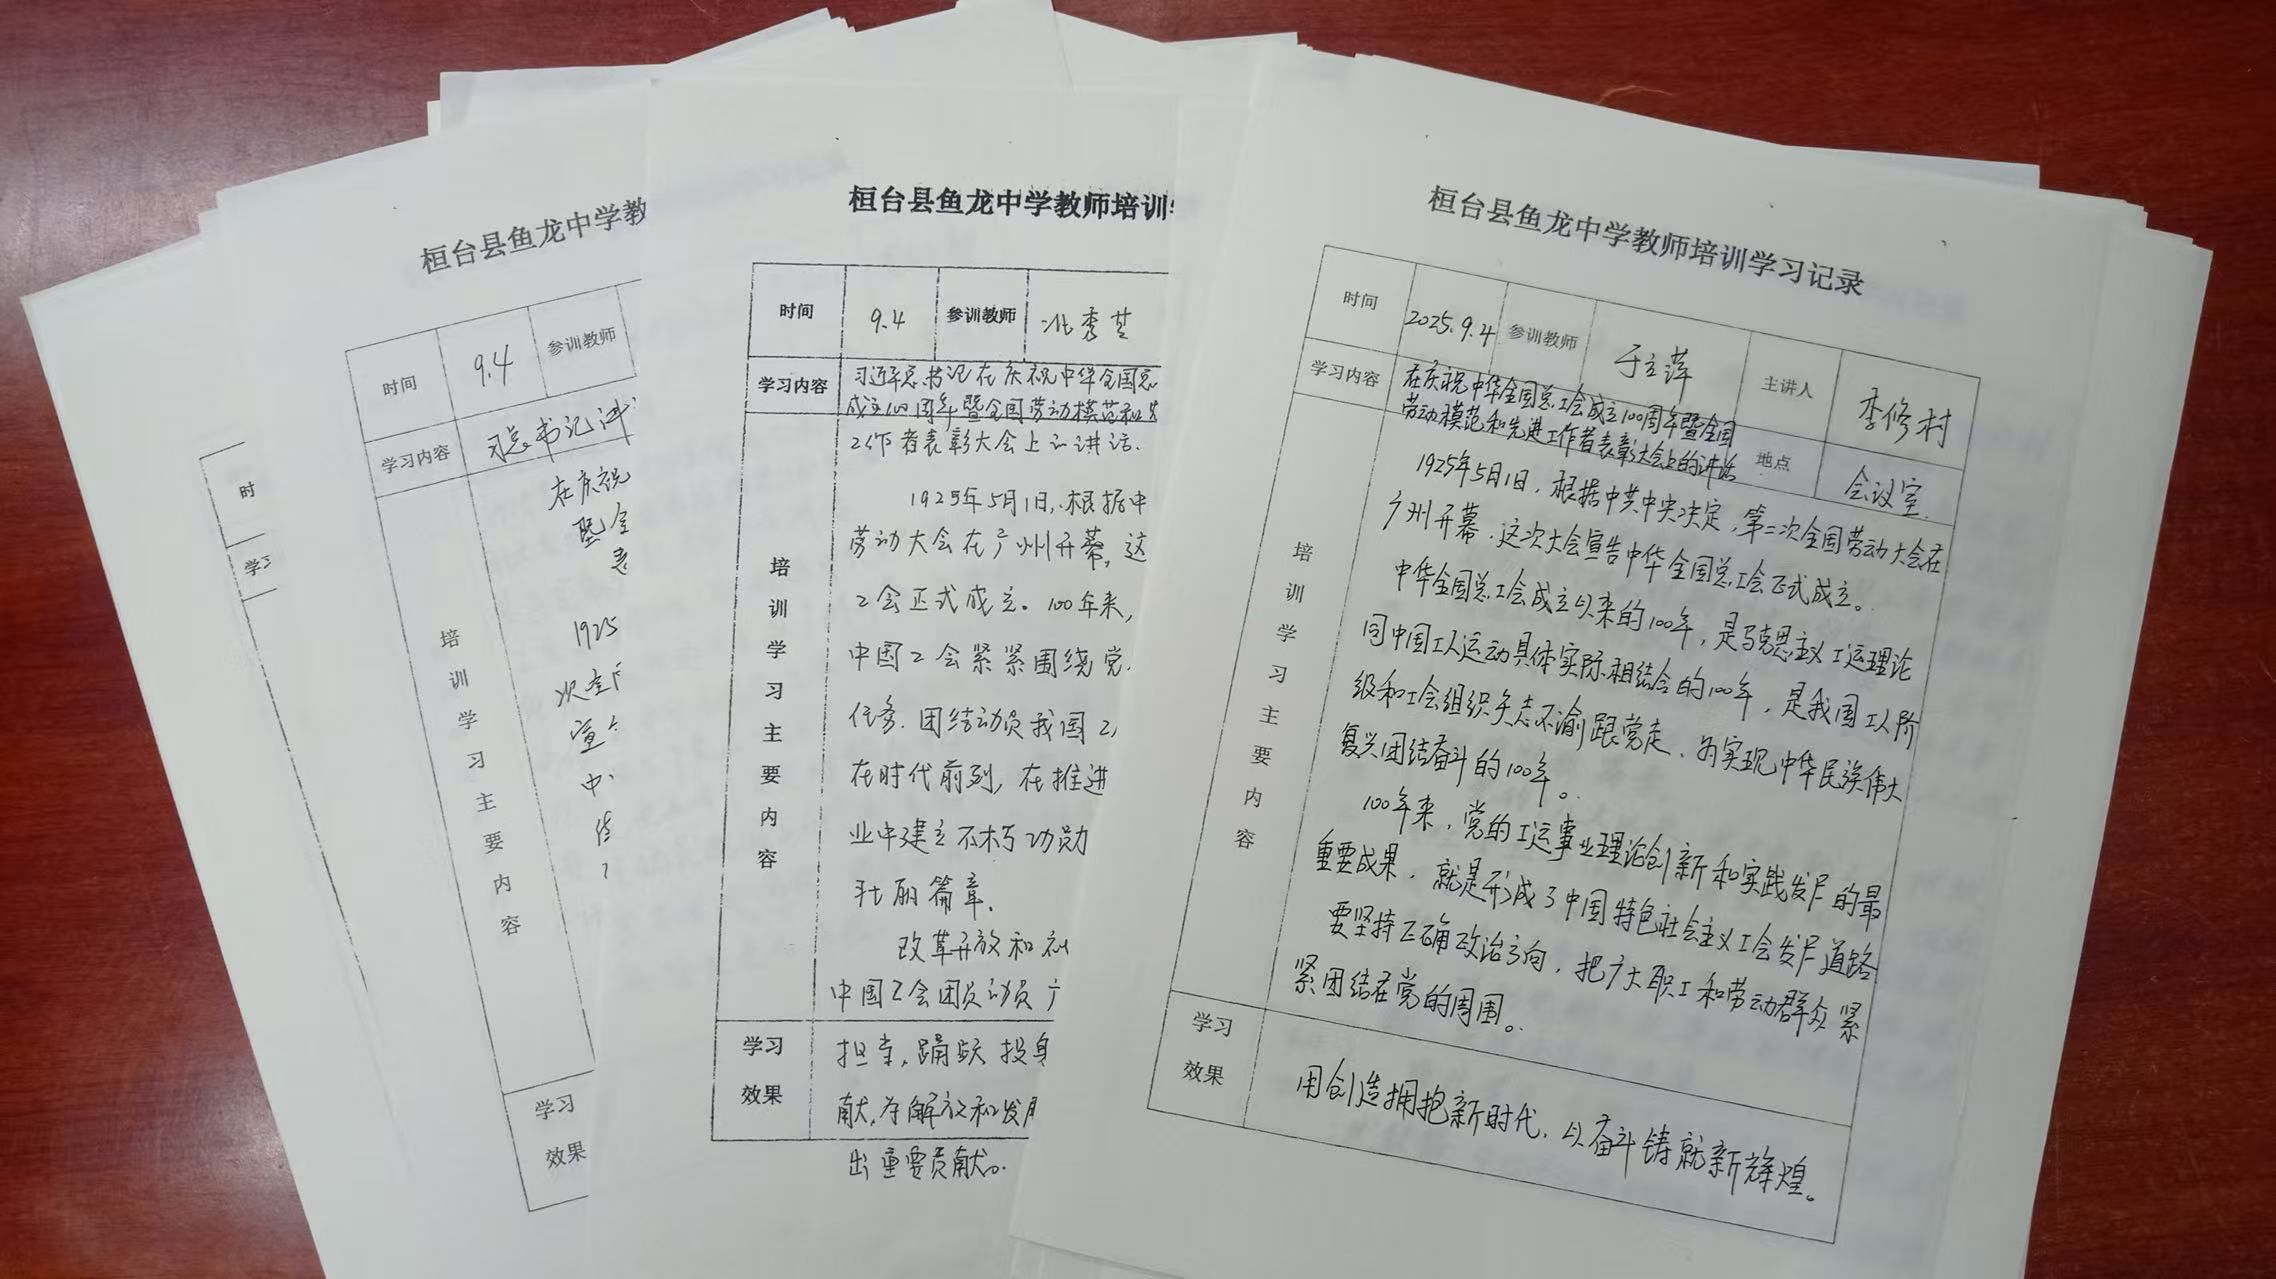 时
学习
桓台县鱼龙中学教
时间
9.4
参训教师
学习内容
习总书记讲
培训学习主要内容
在庆祝
暨全
表
1925
次全
宣
中
学习
效果
桓台县鱼龙中学教师培训
时间
9.4
参训教师
秀芝
学习内容
习近平总书记在庆祝中华全国总
成立100周年暨全国劳动模范和先
工作者表彰大会上的讲话.
培训学习主要内容
1925年5月1日,根据中
劳动大会在广州开幕,这
工会正式成立。100年来,
中国工会紧紧围绕党
任务.团结动员我国工
在时代前列,在推进
业中建立不朽功勋
壮丽篇章.
改革开放和社
中国工会团员动员广
学习
效果
担幸,踊跃投身
献,为解放和发展
出重要贡献。
桓台县鱼龙中学教师培训学习记录
时间
2025.9.4
参训教师
于立萍
主讲人
李修村
学习内容
在庆祝中华全国总工会成立100周年暨全国
劳动模范和先进工作者表彰大会上的讲话
地点
会议室
培训学习主要内容
1925年5月1日,根据中共中央决定,第二次全国劳动大会在
广州开幕.这次大会宣告中华全国总工会正式成立。
中华全国总工会成立以来的100年,是马克思主义工运理论
同中国工人运动具体实际相结合的100年,是我国工人阶
级和工会组织矢志不渝跟党走、为实现中华民族伟大
复兴团结奋斗的100年。
100年来,党的工运事业理论创新和实践发展的最
重要成果,就是形成了中国特色社会主义工会发展道路
要坚持正确政治方向,把广大职工和劳动群众紧
紧团结在党的周围。
学习
效果
用创造拥抱新时代,以奋斗铸就新辉煌。